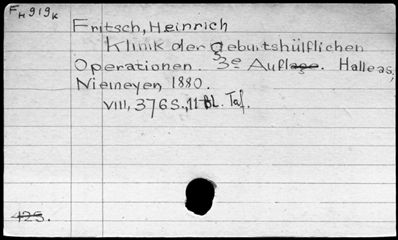 FH919K
Fritsch, Heinrich
Klinik der geburtshülflichen
Operationen. 3e Auflage. Halle a S,
Niemeyer 1880.
VIII, 376 S., 11 Bl. Taf.
425.